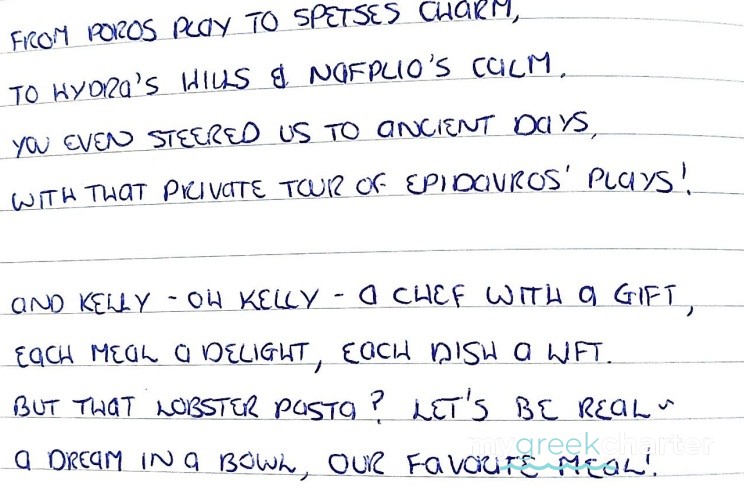 FROM POROS PLAY TO SPETSES CHARM,
TO HYDRA'S HILLS & NAFPLIO'S CALM.
YOU EVEN STEERED US TO ANCIENT DAYS,
WITH THAT PRIVATE TOUR OF EPIDAVROS' PLAYS!
AND KELLY - OH KELLY - A CHEF WITH A GIFT,
EACH MEAL A DELIGHT, EACH DISH A LIFT.
BUT THAT LOBSTER PASTA? LET'S BE REAL ~
A DREAM IN A BOWL, OUR FAVOURITE MEAL!
mygreekcharter